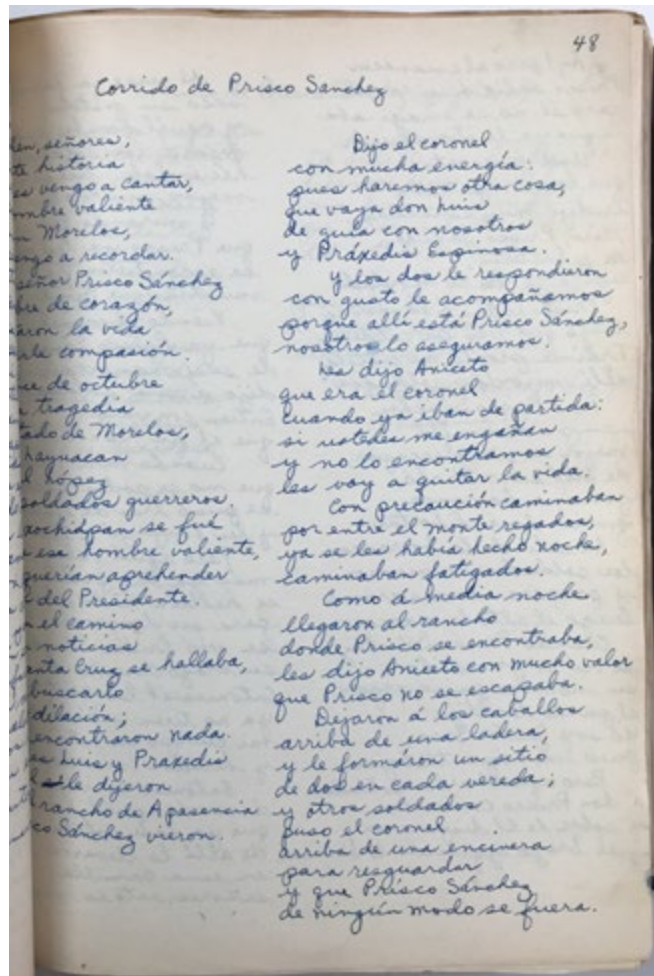 48
Corrido de Prisco Sanchez
señores,
historia
vengo a cantar,
valiente
Morelos,
a recordar.
señor Prisco Sánchez
de corazón,
la vida
compasión.
de octubre
tragedia
de Morelos,
López
soldados guerreros,
se fué
ese hombre valiente,
querían aprehender
del Presidente.
el camino
noticias
Cruz se hallaba,
buscarlo
dilación;
encontraron nada.
Luis y Praxedis
le dijeron
rancho de Apasencia
Sánchez vieron.
Dijo el coronel
con mucha energía:
pues haremos otra cosa,
que vaya don Luis
de guía con nosotros
y Práxedis Espinosa.
Y los dos le respondieron
con gusto le acompañamos
porque allí está Prisco Sánchez,
nosotros lo aseguramos.
Les dijo Aniceto
que era el coronel
cuando ya iban de partida:
si ustedes me engañan
y no lo encontramos
les voy a quitar la vida.
Con precaución caminaban
por entre el monte regados,
ya se les había hecho noche,
caminaban fatigados.
Como á media noche
llegaron al rancho
donde Prisco se encontraba,
les dijo Aniceto con mucho valor
que Prisco no se escapaba.
Dejaron á los caballos
arriba de una ladera,
y le formáron un sitió
de dos en cada vereda;
y otros soldados
puso el coronel
arriba de una encinera
para resguardar
y que Prisco Sánchez
de ningún modo se fuera.